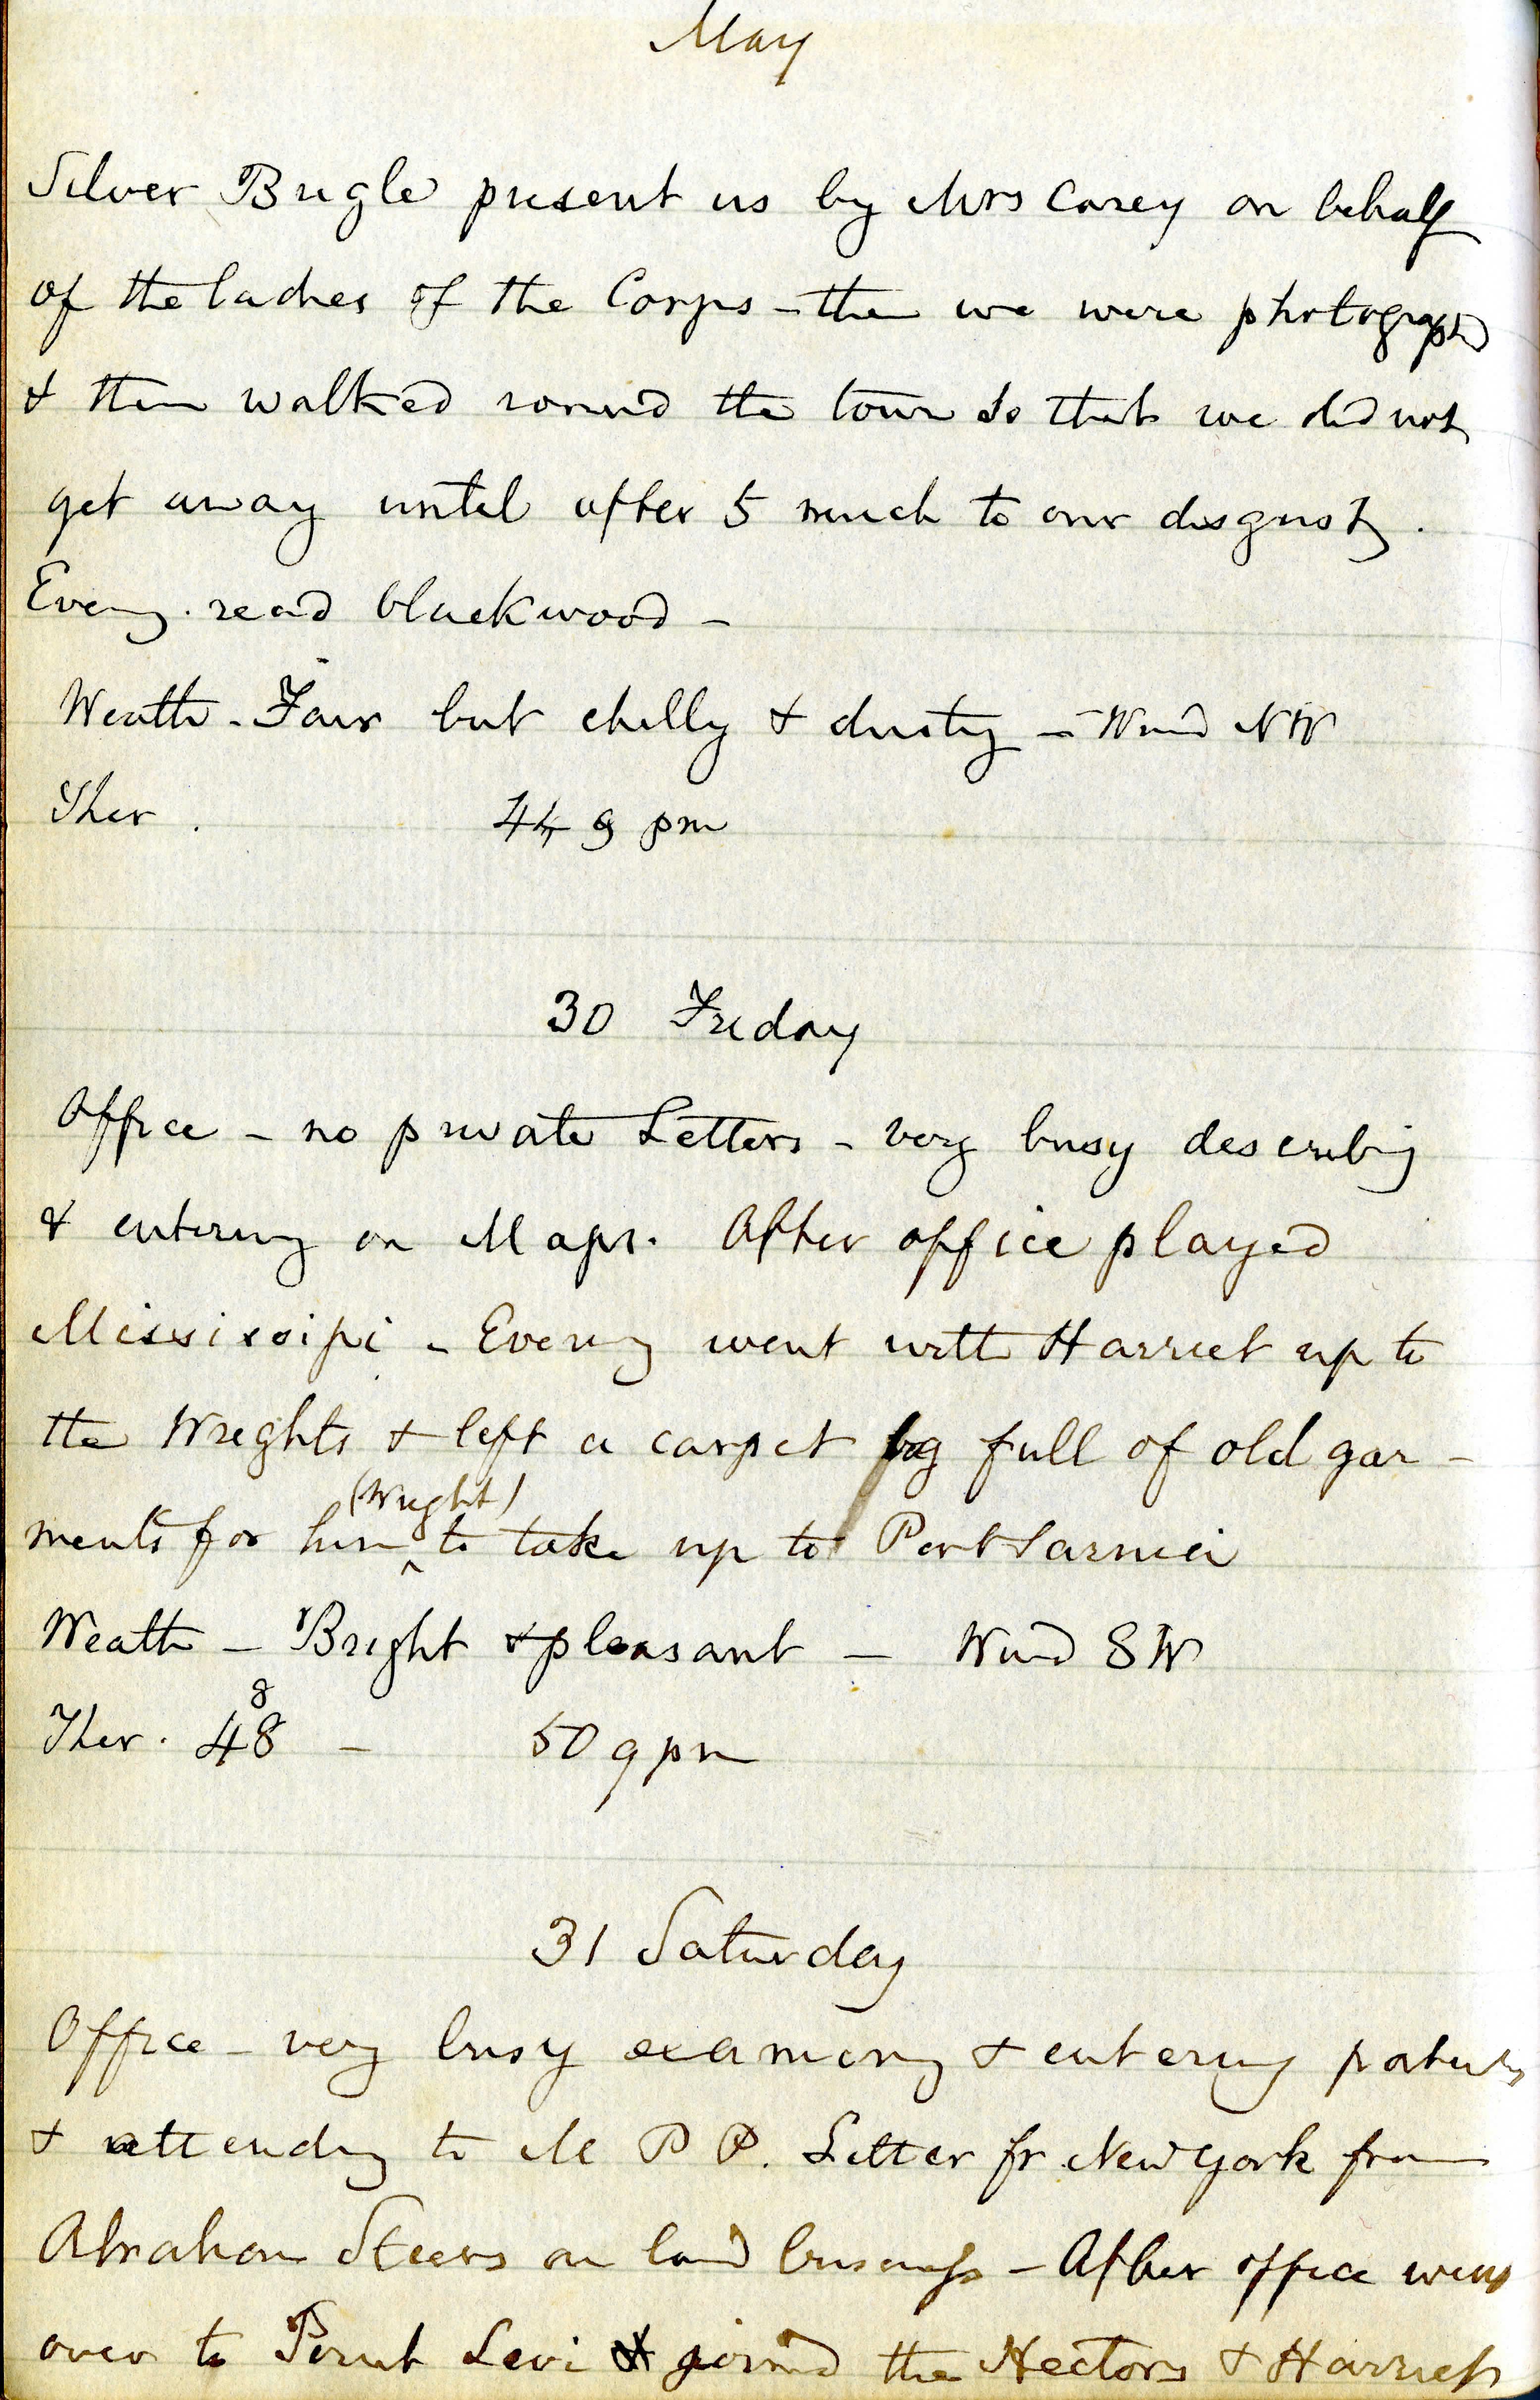 May
Silver Bugle present us by Mrs Carey on behalf
of the ladies of the Corps - then we were photographd
& then walked round the town so that we did not
get away until after 5 much to our disgust.
Eveng. read blackwood -
Weath - Fair but chilly & dusty - Wind NW
Ther. 44 9 pm
30 Friday
Office - no private Letters - very busy describing
& entering on Maps. After office played
Mississipi - Evening went with Harriet up to
the Wrights & left a carpet bag full of old gar -
(Wright)
ments for him ^ to take up to Port Sarnia
Weath - Bright & pleasant - Wind SW
8
Ther. 48 - 50 9 pm
31 Saturday
Office - very busy examining & entering patents
& attending to M P P. Letter fr New York from
Abraham Steers on land business - After office went
over to Point Levi & joined the Hectors & Harriet